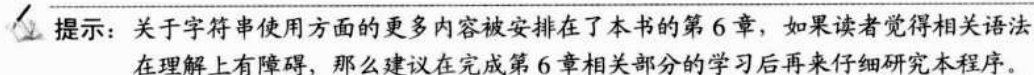 提示：关于字符串使用方面的更多内容被安排在了本书的第 6 章，如果读者觉得相关语法
在理解上有障碍，那么建议在完成第 6 章相关部分的学习后再来仔细研究本程序。